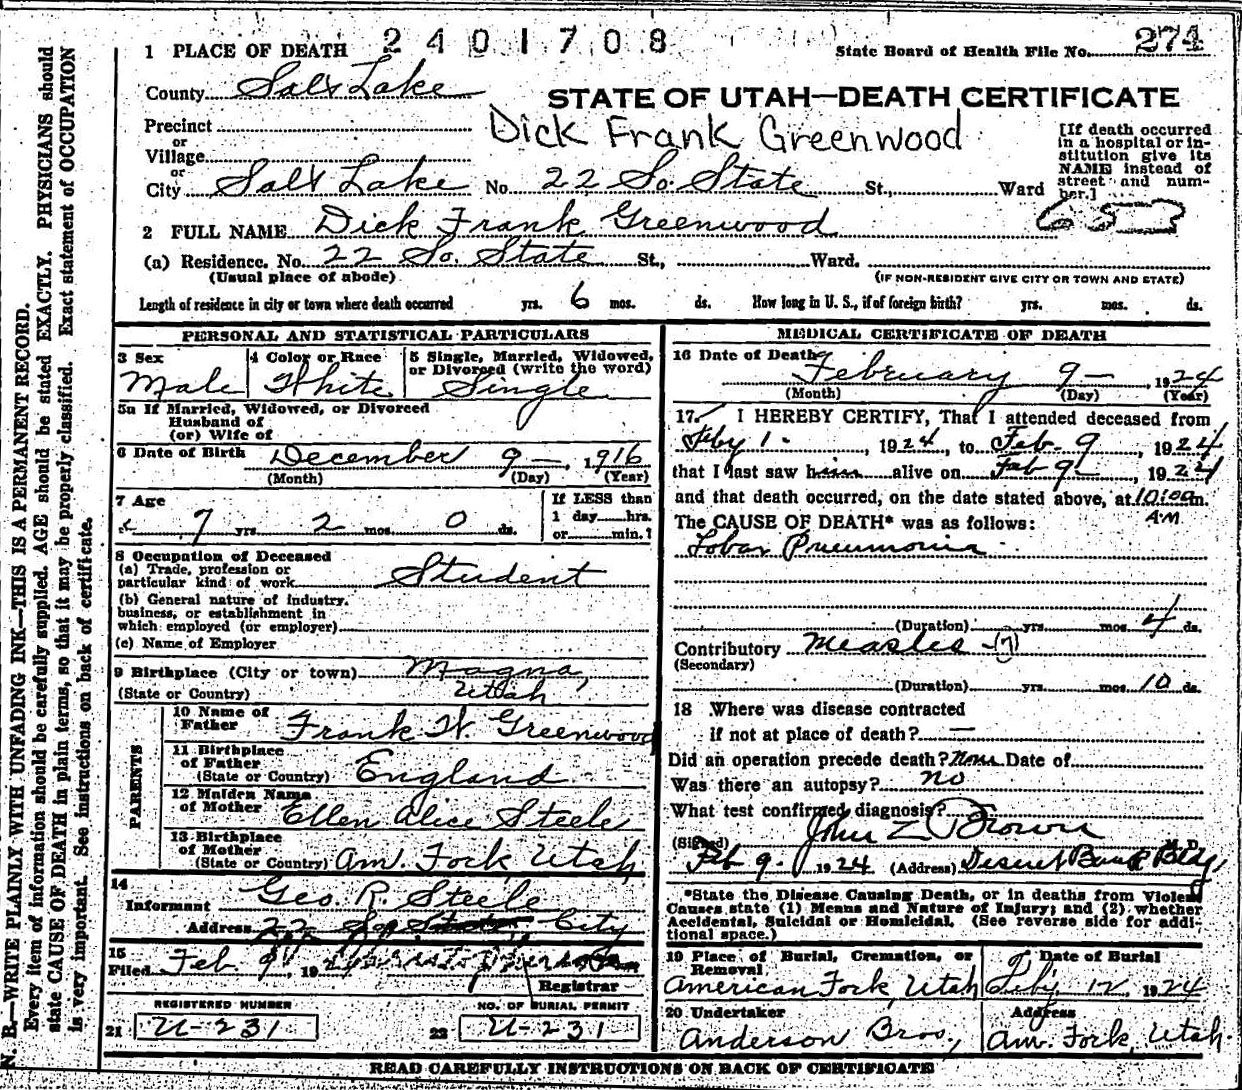 1 PLACE OF DEATH 2401708 State Board of Health File No. 274
County Salt Lake
STATE OF UTAH—DEATH CERTIFICATE
Precinct
or
Village
Dick Frank Greenwood
[If death occurred in a hospital or institution give its NAME instead of street and number.]
or
City Salt Lake No. 22 So. State St., Ward
2 FULL NAME Dick Frank Greenwood
(a) Residence. No. 22 So. State St., Ward.
(Usual place of abode) (IF NON-RESIDENT GIVE CITY OR TOWN AND STATE)
Length of residence in city or town where death occurred yrs. 6 mos. ds. How long in U. S., if of foreign birth? yrs. mos. ds.
PERSONAL AND STATISTICAL PARTICULARS
3 Sex Male
4 Color or Race White
5 Single, Married, Widowed, or Divorced (write the word) Single
5a If Married, Widowed, or Divorced
Husband of
(or) Wife of
6 Date of Birth December 9 — , 1916
(Month) (Day) (Year)
7 Age
7 yrs. 2 mos. 0 ds.
If LESS than
1 day hrs.
or min.?
8 Occupation of Deceased
(a) Trade, profession or
particular kind of work Student
(b) General nature of industry.
business, or establishment in
which employed (or employer)
(c) Name of Employer
9 Birthplace (City or town) Magna,
(State or Country) Utah
PARENTS
10 Name of
Father Frank W. Greenwood
11 Birthplace
of Father
(State or Country) England
12 Maiden Name
of Mother Ellen Alice Steele
13 Birthplace
of Mother
(State or Country) Am. Fork, Utah,
14
Informant Geo. R. Steele
Address 22 So State, City
15
Filed Feb 9, 1924
Registrar
REGISTERED NUMBER NO. OF BURIAL PERMIT
21 U-231 22 U-231
MEDICAL CERTIFICATE OF DEATH
16 Date of Death
February 9 — , 1924
(Month) (Day) (Year)
17 I HEREBY CERTIFY, That I attended deceased from
Feby 1 , 1924, to Feb. 9 , 1924
that I last saw him alive on Feb 9 , 1924
and that death occurred, on the date stated above, at 10:00 m.
AM
The CAUSE OF DEATH* was as follows:
Lobar Pneumonia
(Duration) yrs. mos. 4 ds.
Contributory Measles (7)
(Secondary)
(Duration) yrs. mos. 10 ds.
18 Where was disease contracted
if not at place of death? —
Did an operation precede death? None Date of
Was there an autopsy? no
What test confirmed diagnosis?
(Signed) John Z Brown M. D.
Feb 9. 1924 (Address) Deseret Bank Bldg,
*State the Disease Causing Death, or in deaths from Violent
Causes state (1) Means and Nature of Injury; and (2) whether
Accidental, Suicidal or Homicidal. (See reverse side for addi-
tional space.)
19 Place of Burial, Cremation, or
Removal
American Fork, Utah
Date of Burial
Feby 12, 1924
20 Undertaker
Anderson Bros.,
Address
Am. Fork, Utah.
READ CAREFULLY INSTRUCTIONS ON BACK OF CERTIFICATE
N. B.—WRITE PLAINLY WITH UNFADING INK—THIS IS A PERMANENT RECORD.
Every item of information should be carefully supplied. AGE should be stated EXACTLY. PHYSICIANS should
state CAUSE OF DEATH in plain terms, so that it may be properly classified. Exact statement of OCCUPATION
is very important. See instructions on back of certificate.